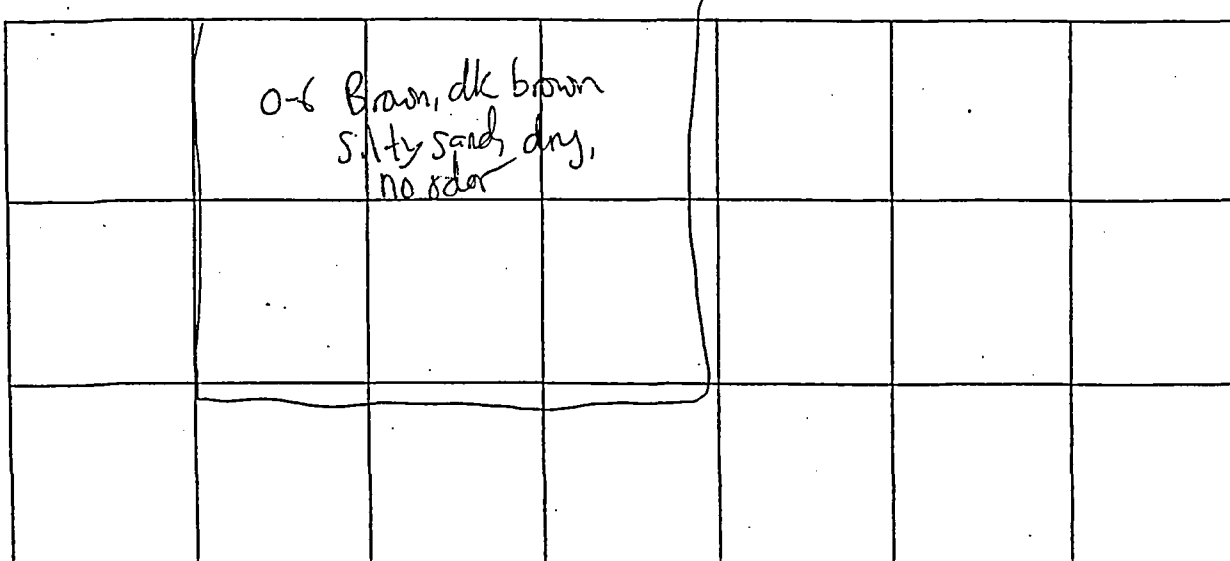 0-6 Brown, dk brown
silty sand, dry,
no odor